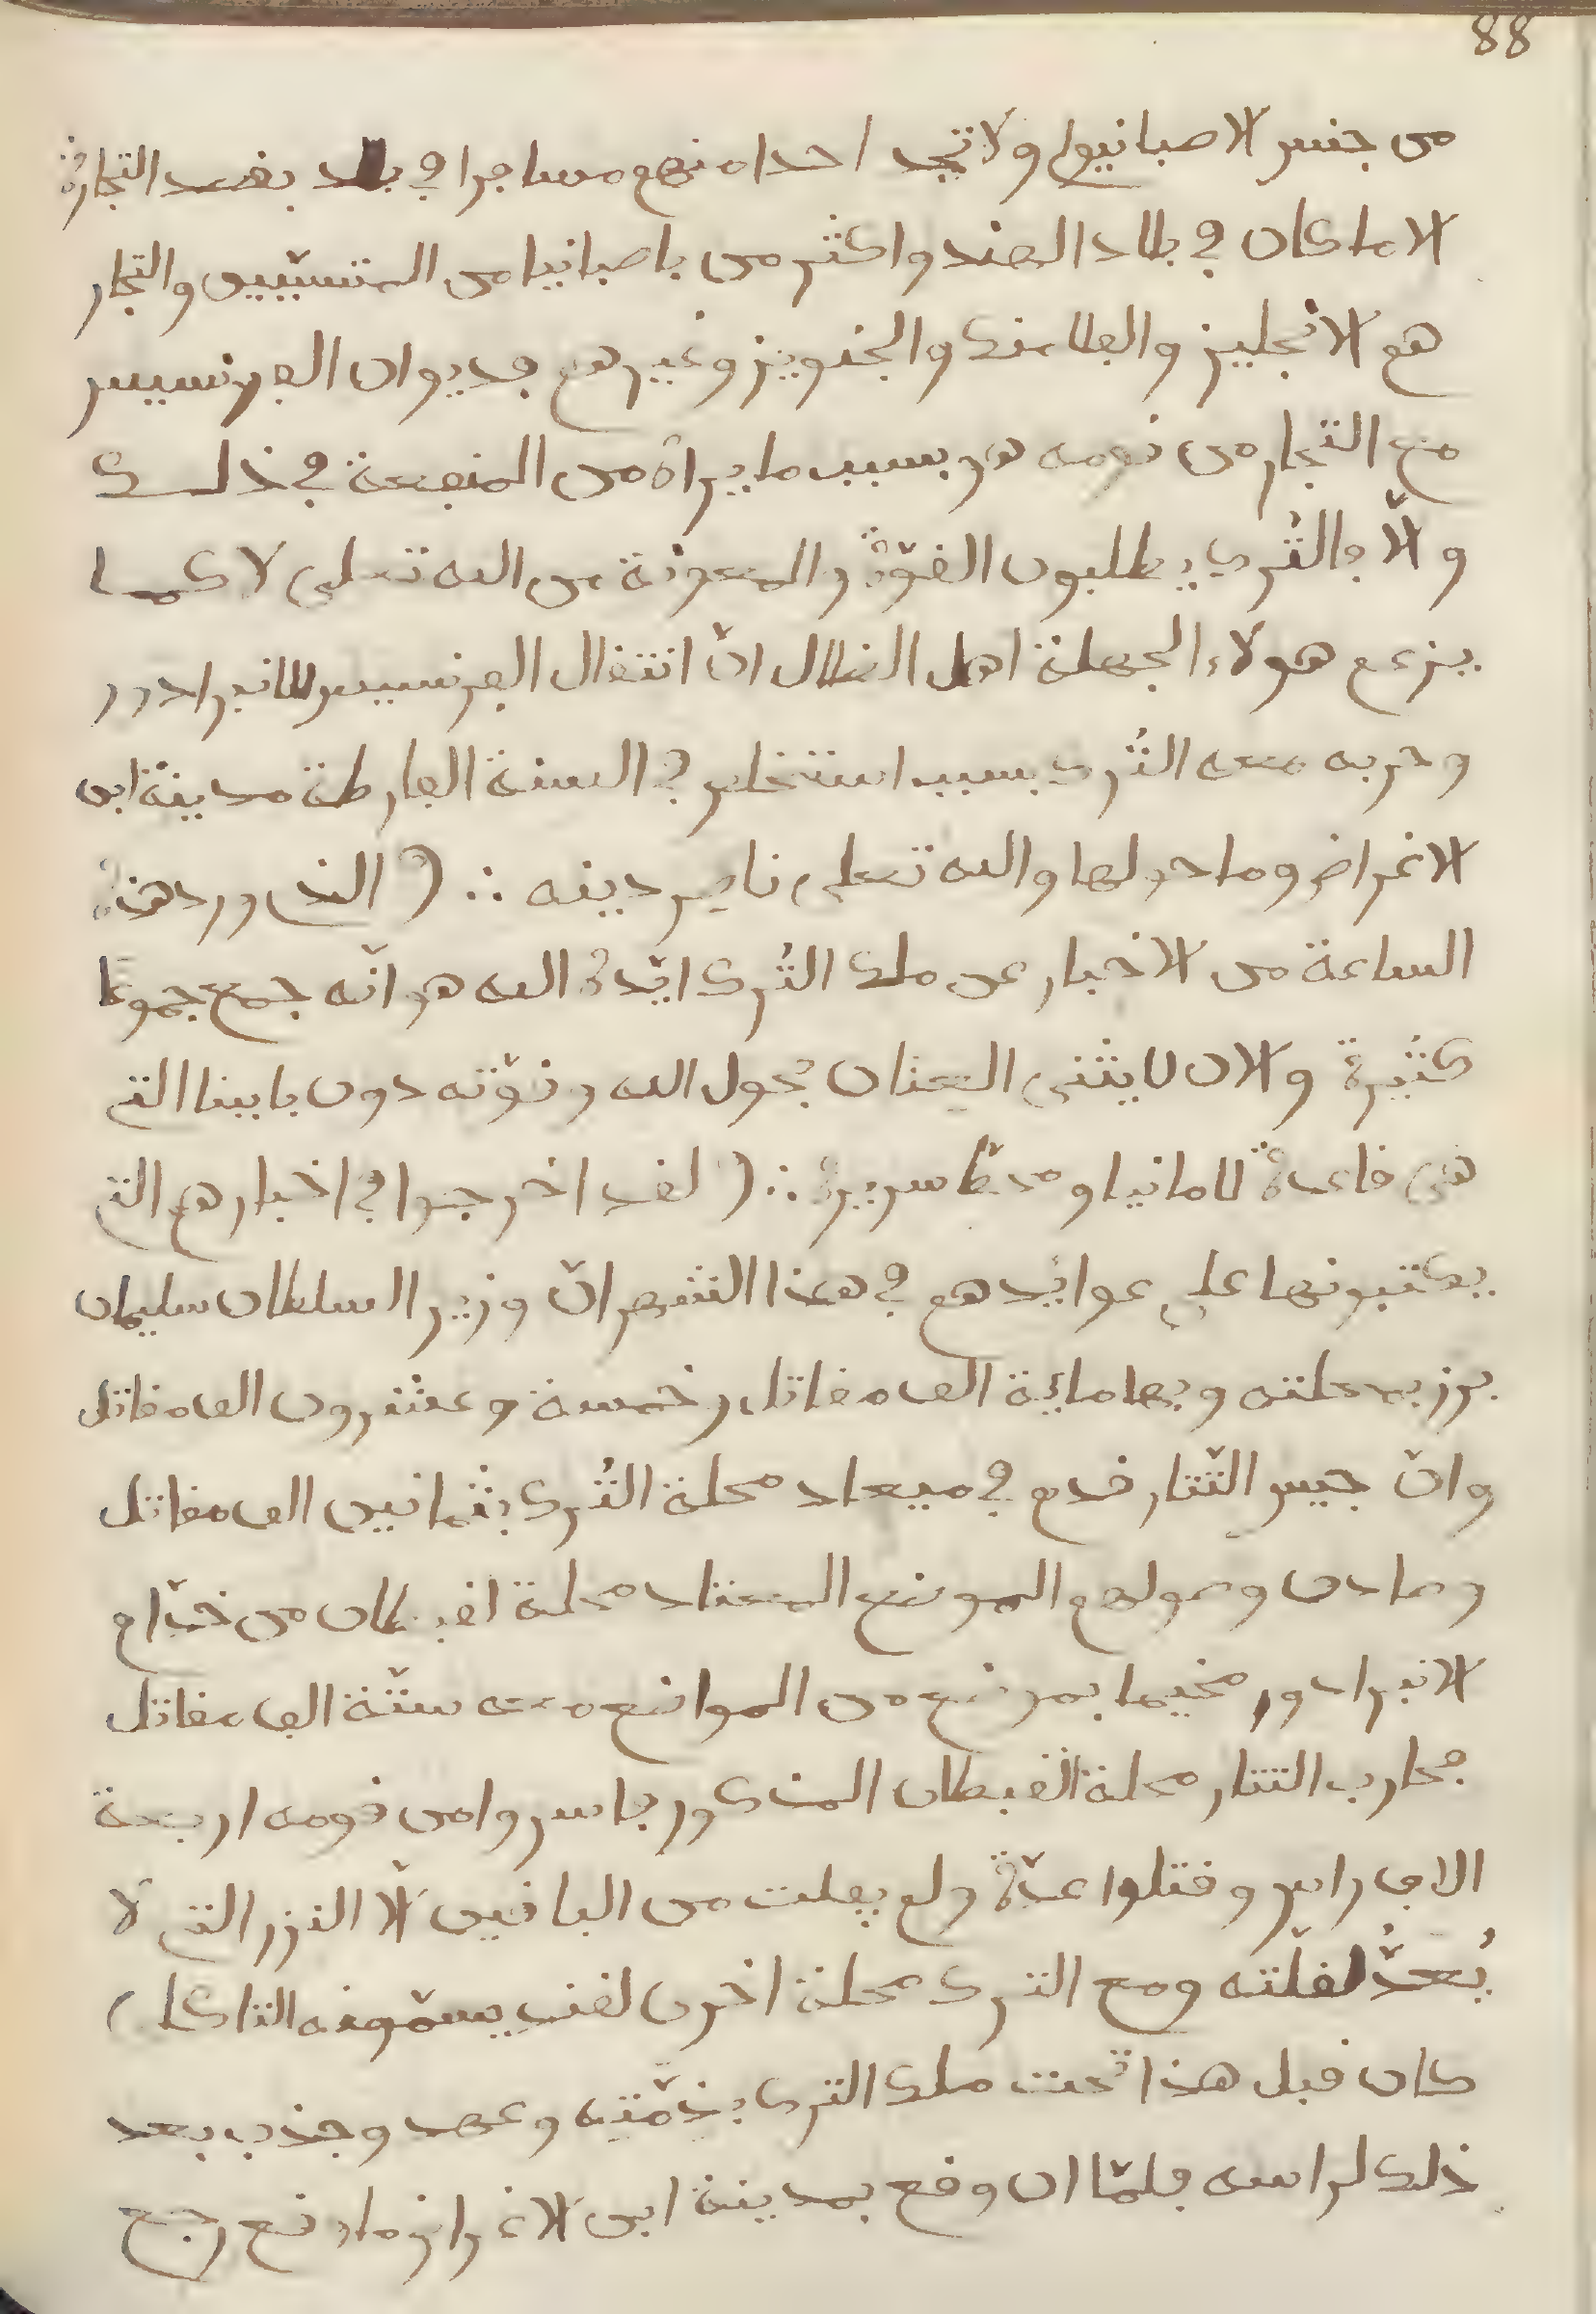 88
من جنس الاصبانيول ولا تجد احدا منهم مسافرا في بلد بقصد التجارة
الا ما كان في بلاد الهند واكثر من باصبانيا من المتسببين والتجار
هم الانجليز والفلامنك والجنويز وغيرهم فديوان الفرنسيس
مع التجار من قومه هو بسبب ما يراه من المنفعة في ذلك
والّا فالتُرك يطلبون القوّة والمعونة من الله تعلى لا كما
يزعم هولاء الجهلة اهل الضلال انّ انتقال الفرنسيس للانبرادور
وحربه معه التُرك بسبب استخلص في السنة الفارطة مدينة ابن
الاغراض وما حولها والله تعلى ناصر دينه ∴ ( الذي ورد هذه
الساعة من الاخبار عن ملك التُرك ايّده الله هو انّه جمع جموعا
كثيرة والان لا يثنى العنان بحول الله وقوّته دون بابينا التي
هى قاعدة لامانيا ومحطّ سريره ∴ ( لقد اخرجوا في اخبارهم التي
يكتبونها على عوائدهم في هذا الشهر انّ وزير السلطان سليمان
برز بمحلته وبها مائة الف مقاتل وخمسة وعشرون الف مقاتل
وانّ جيس التّتار قدم في ميعاد محلة التُرك بثمانين الف مقاتل
وصادف وصولهم الموضع المعتاد محلة لقبطان من خدّام
الانبرادور مخيما بموضع من المواضع معه ستّة الاف مقاتل
فحارب التتار محلة القبطان المذكور فاسروا من قومه اربعة
الاف راس وقتلوا عدّة ولم يفلت من الباقين الّا النزر التي لا
يُعدُّ لقلّته ومع الترك محلة اخرى لقند يسمّونه التاكلى
كان قبل هذا تحت ملك الترك بذمّته وعهد وجذب بعد
ذلك لراسه فلمّا ان وقع بمدينة ابن الاغراض ما وقع رجع